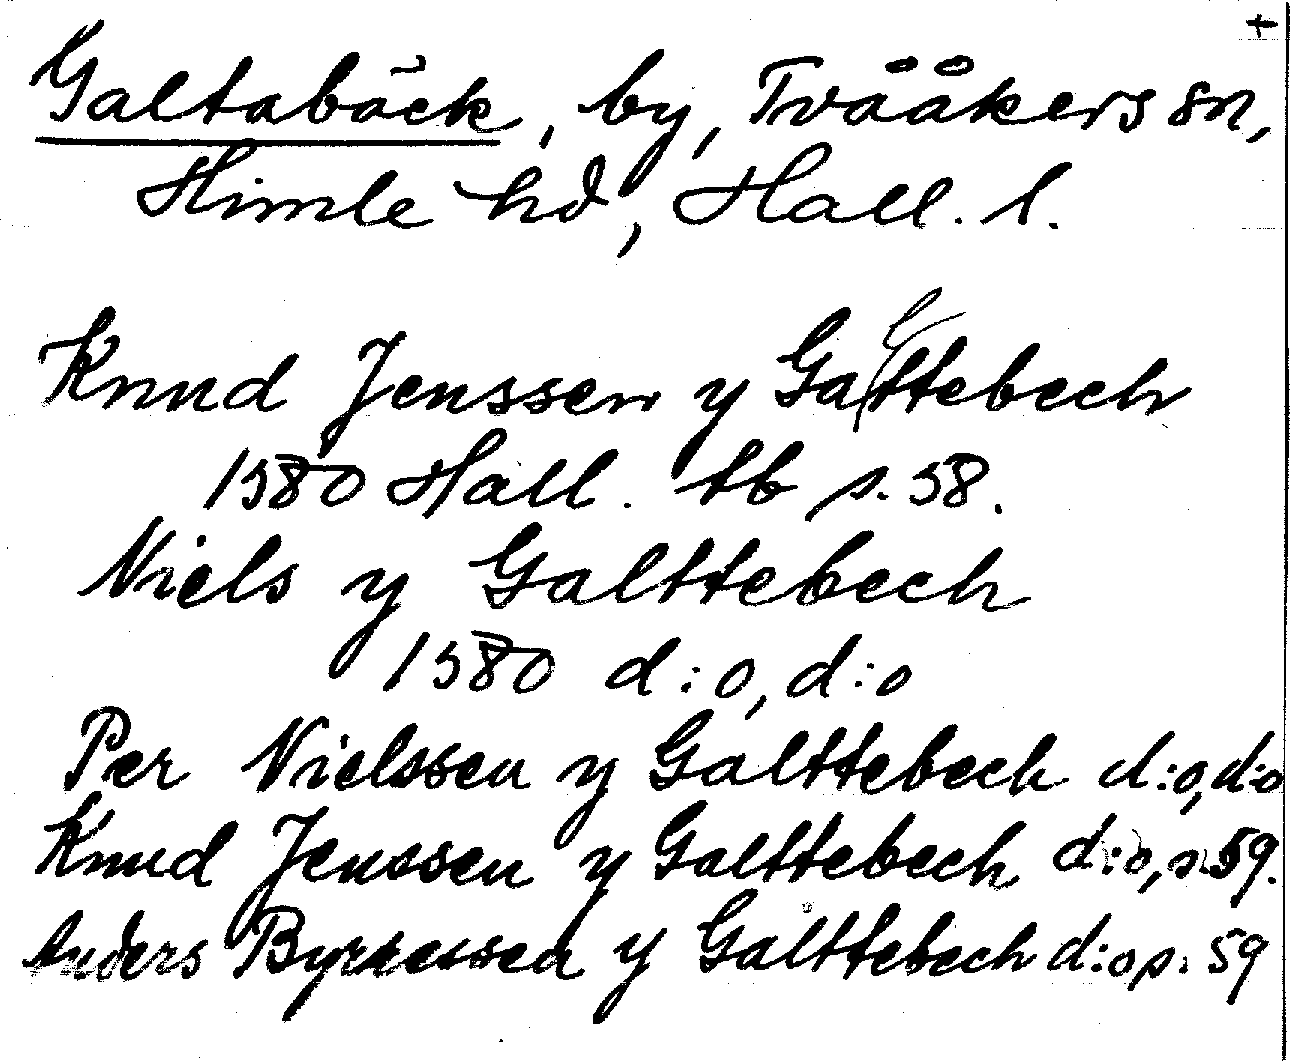 +
Galtabäck, by, Tvååkers sn,
Himle hd, Hall. l.
Knud Jenssen y Galttebech
1580 Hall. tb s. 58.
Niels y Galttebech
1580 d:o, d:o
Per Nielssen y Galttebech d:o, d:o
Knud Jenssen y Galttebech d:o, s. 59.
Anders y Galttebech d:o s. 59